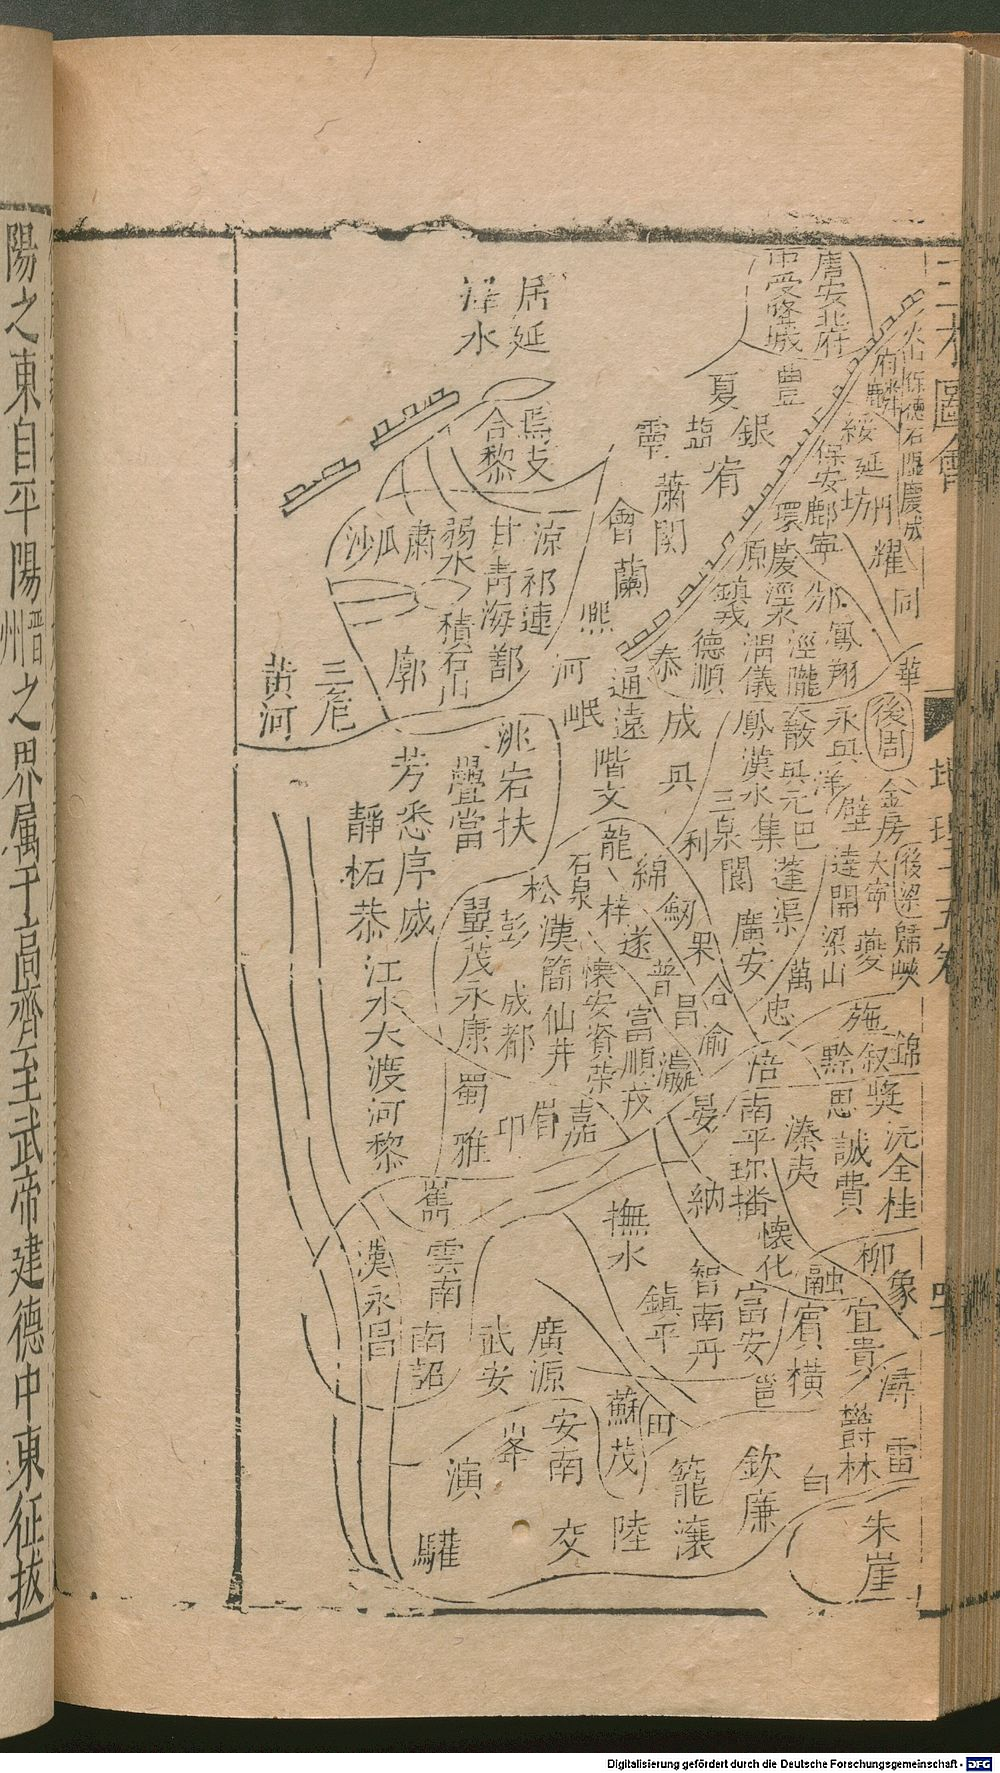 唐安北府
中受降城
豐
夏
居延
澤水
焉支
合黎
銀
鹽
靈
宥
蕭關
會
蘭
熙
河
岷
通遠
泰
成
興
階文
府
麟
綏
延
州
保安
鄜
坊
寧
環
慶
原
鎮戎
德順
涇
渭
儀
隴
邠
鳳翔
耀
同
華
後周
永興
洋
金
房
鳳
漢水
集
散
興元
巴
三泉
利
閬
蓬
渠
壁
達
開
梁山
大寧
夔
後梁
歸
峽
廣安
萬
忠
涼
祁連
甘
青海
鄯
弱水
積石山
肅
瓜
沙
廓
三危
黃河
洮
宕
扶
疊
當
芳
悉
序
威
靜
柘
恭
江水
大渡河
黎
龍
綿
劍
石泉
梓
遂
果
普
合
昌
渝
松
翼
茂
永康
彭
成都
漢
簡
仙井
懷安
資
榮
富順
瀘
戎
嘉
眉
卭
雅
蜀
施
黔
叙
錦
獎
思
涪
南平
珍
播
溱
夷
誠
費
沅
全
桂
晏
納
撫水
懷化
融
柳
象
宜
貴
賓
橫
富安
邕
智
南丹
鎮平
巂
雲南
漢永昌
南詔
武安
廣源
安南
峯
演
驩
交
蘇茂
田
陸
籠
瀼
欽
廉
白
欝林
潯
雷
朱崖
三才圖會
地理十五卷
陽之東自平陽晉州之界属于高齊至武帝建德中東征拔
Digitalisierung gefördert durch die Deutsche Forschungsgemeinschaft - DFG